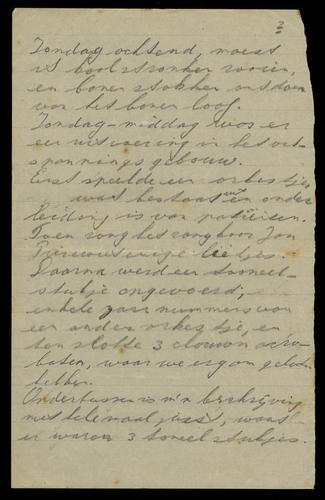 2
Zondag ochtend, moest
ik boolstronken rooien,
en bonen stokken ontdoen
van het bonen loof.
Zondag-middag was er
een uitvoering in het ont-
spannings gebouw.
Eerst speelde een orkestje,
wat bestaat uit en onder
leiding is van patiënten.
Toen zong het zangkoor Jan
liedjes.
Daarna werd een toneel-
stukje opgevoerd,
enkele jazz nummers van
een ander orkestje, en
ten slotte 3 clown acro-
baten, waar we erg om gelachen
hebben.
Ondertussen is m'n beschrijving
niet helemaal juist, want
er waren 3 toneel stukjes.